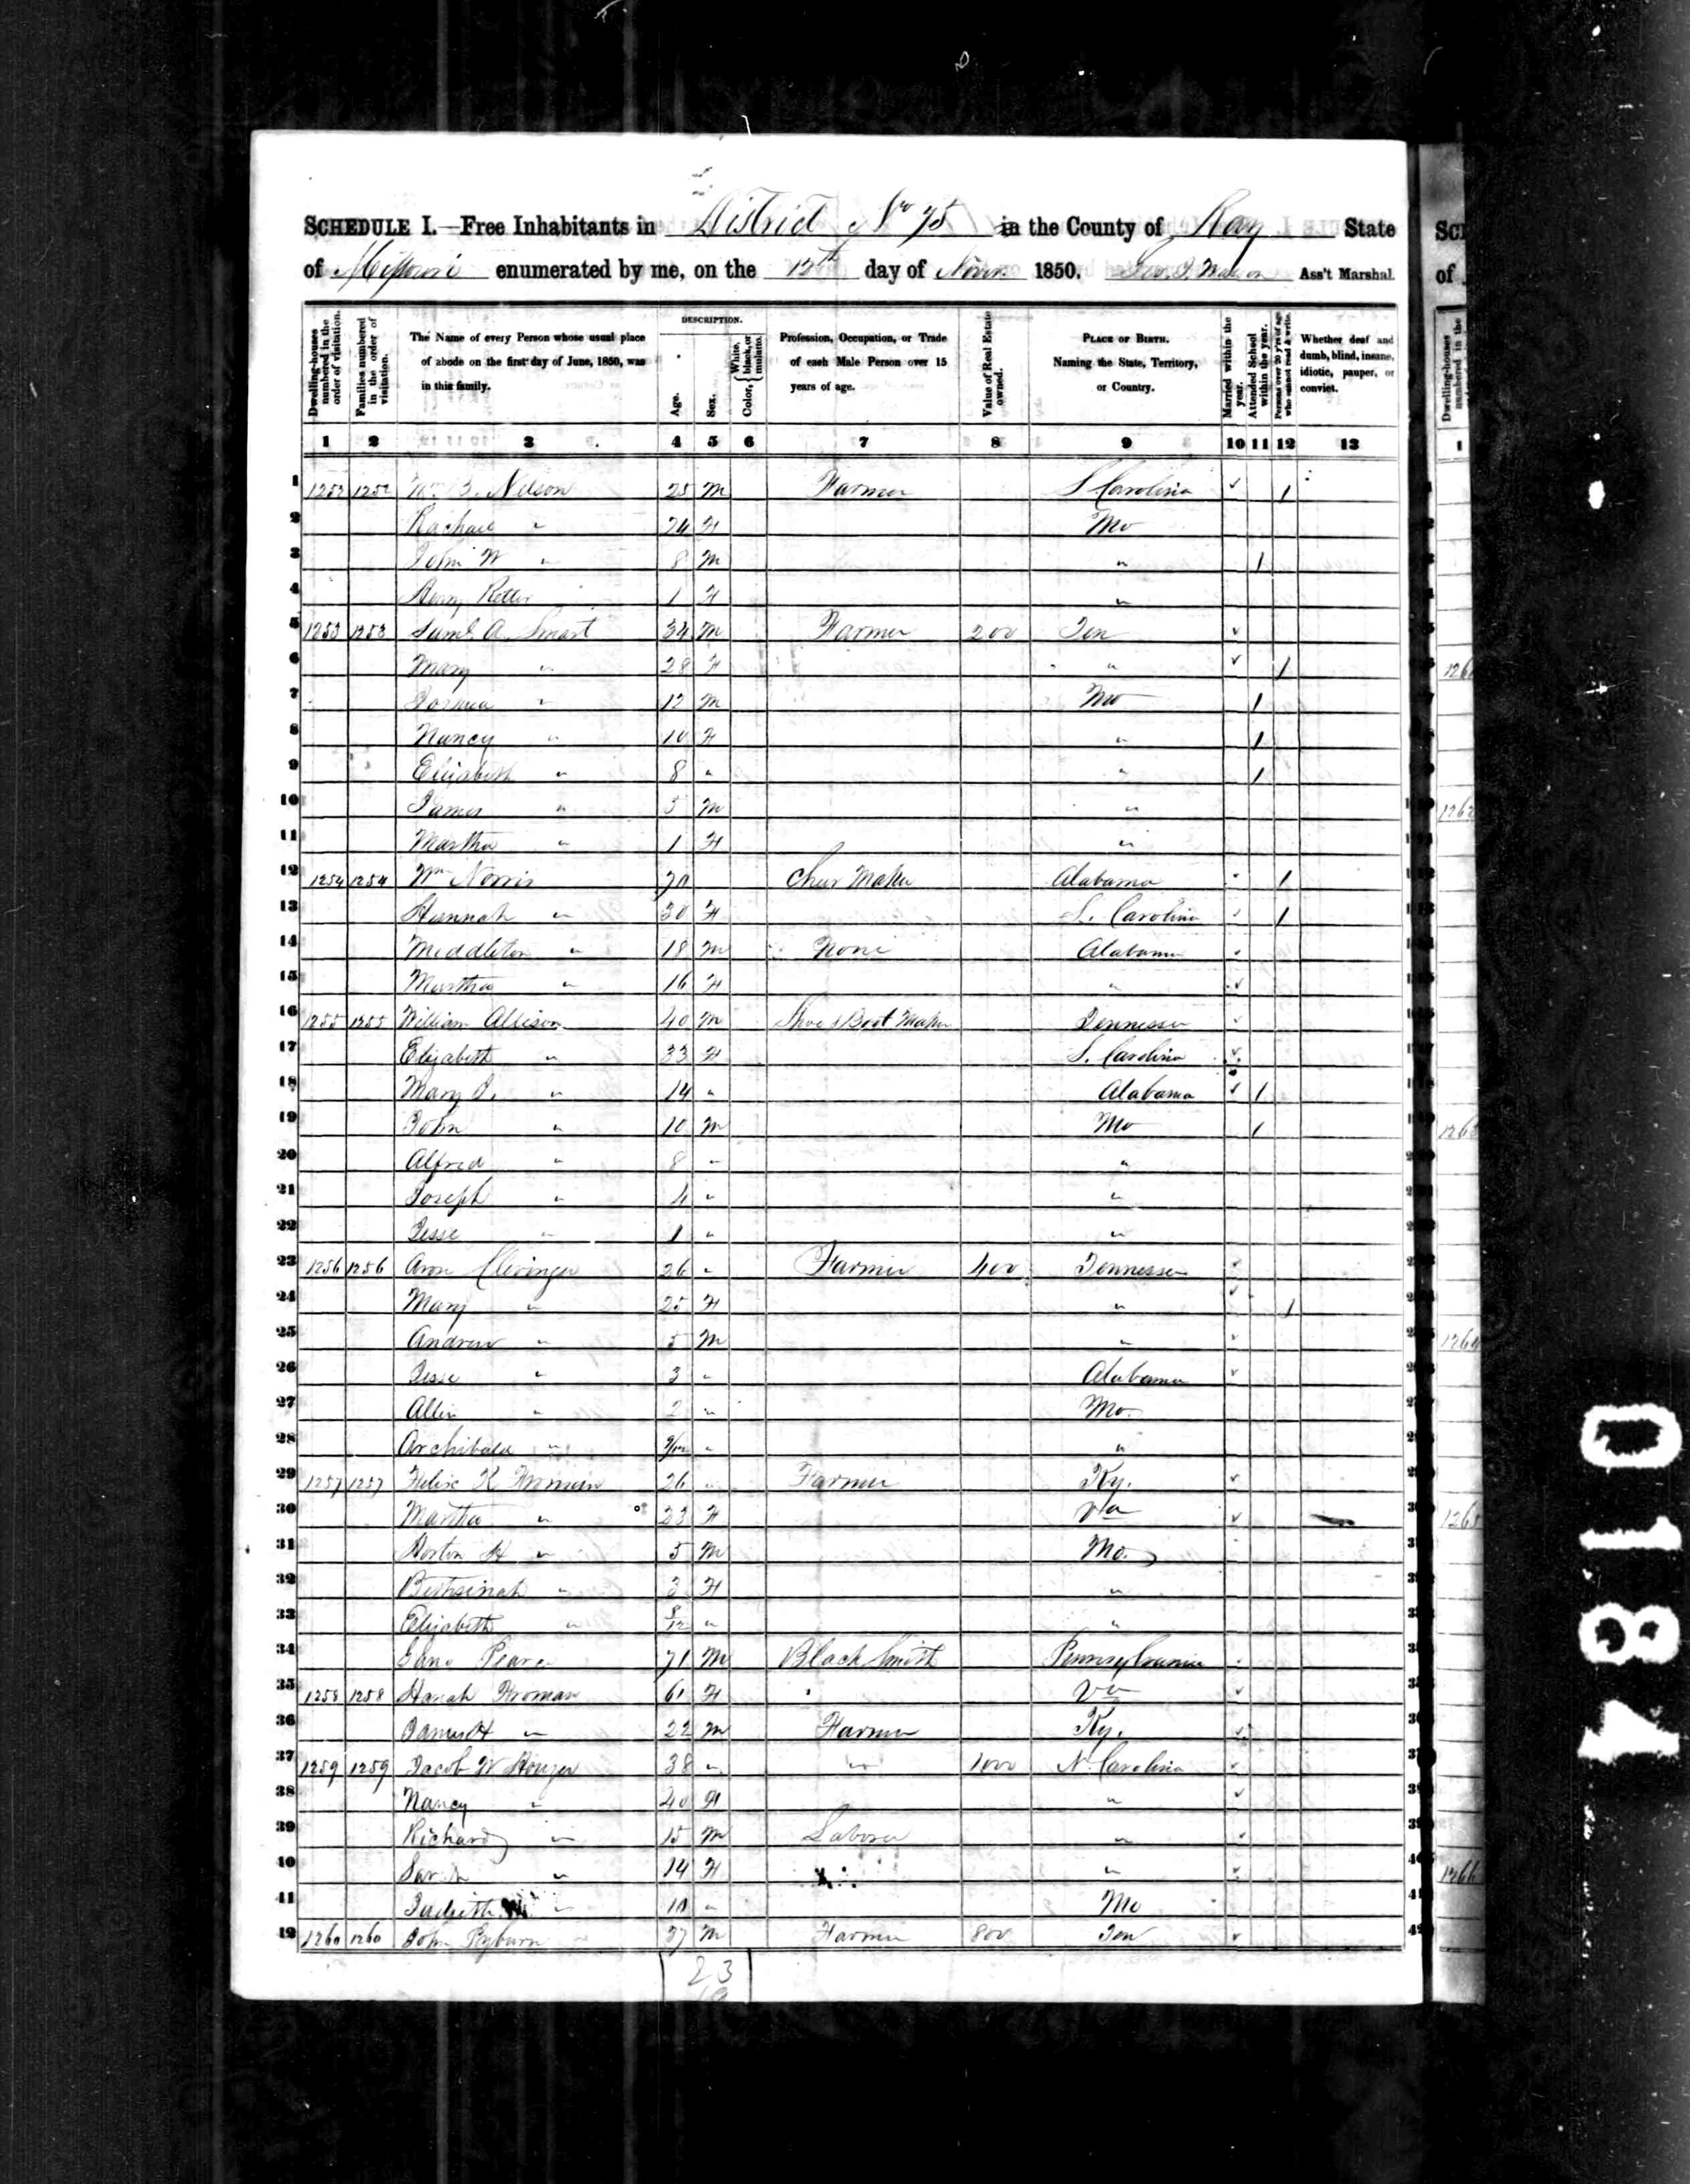 SCHEDULE I.—Free Inhabitants in District No 75 in the County of Ray State
of Missouri enumerated by me, on the 12th day of Novr. 1850. Ass't Marshal.
Dwelling-houses numbered in the order of visitation.
Families numbered in the order of visitation.
The Name of every Person whose usual place of abode on the first day of June, 1850, was in this family.
DESCRIPTION.
Age.
Sex.
Color, { White, black, or mulatto.
Profession, Occupation, or Trade of each Male Person over 15 years of age.
Value of Real Estate owned.
PLACE OF BIRTH. Naming the State, Territory, or Country.
Married within the year.
Attended School within the year.
Persons over 20 y'rs of age who cannot read & write.
Whether deaf and dumb, blind, insane, idiotic, pauper, or convict.
1 2 3 4 5 6 7 8 9 10 11 12 13
1 1252 1252 Wm B. Nelson 25 M Farmer S Carolina / 
2 Rachael " 24 F Mo
3 John W " 8 M " /
4 1 F "
5 1253 1253 Saml A. Smart 34 M Farmer 200 Ten
6 Mary " 28 F " /
7 Joshua " 12 M Mo /
8 Nancy " 10 F " /
9 Elizabeth " 8 " " /
10 James " 5 M "
11 Martha " 1 F "
12 1254 1254 Wm Norris 70 Chair Maker Alabama /
13 Hannah " 30 F S. Carolina /
14 Middleton " 18 M None Alabama
15 Martha " 16 F "
16 1255 1255 William Allison 40 M Shoe & Boot Maker Tennessee
17 Elizabeth " 33 F S. Carolina
18 Mary J. " 14 " Alabama /
19 John " 10 M Mo /
20 Alfred " 8 " "
21 Joseph " 4 " "
22 Jesse " 1 " "
23 1256 1256 Aron Clevinger 26 " Farmer 400 Tennessee
24 Mary " 25 F " /
25 Andrew " 5 M "
26 Jesse " 3 " Alabama
27 Allen " 2 " Mo.
28 Archibald " 9/12 " "
29 1257 1257 Felix K Froman 26 " Farmer Ky.
30 Martha " 23 F Va
31 Horton H " 5 M Mo.
32 " 3 F "
33 Elizabeth " 8/12 " "
34 Pearce 71 M Black Smith Pennsylvania
35 1258 1258 Hanah Froman 61 F Va
36 James H " 22 M Farmer Ky.
37 1259 1259 Jacob W 38 " " 1000 N. Carolina
38 Nancy " 40 F "
39 Richard " 15 M Laborer "
40 Sarah " 14 F "
41 " 10 " Mo
42 1260 1260 John Pyburn 37 M Farmer 800 Ten
23
SCH
of
Dwelling-houses numbered in the
1
1262
1264
1266
01814